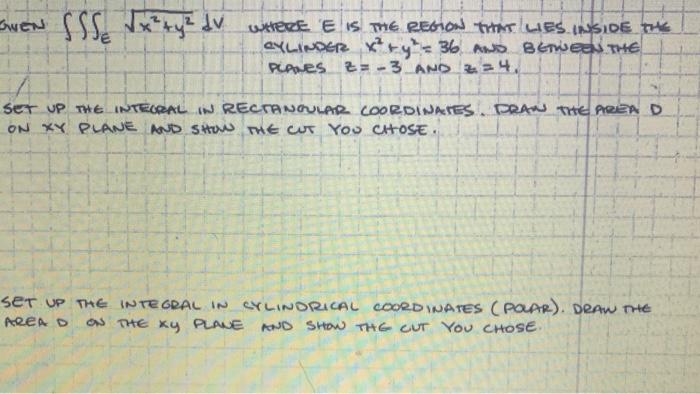 GIVEN ∭_E √x²+y² dV WHERE E IS THE REGION THAT LIES INSIDE THE
CYLINDER x²+y²=36 AND BETWEEN THE
PLANES z=-3 AND z=4.
SET UP THE INTEGRAL IN RECTANGULAR COORDINATES. DRAW THE AREA D
ON XY PLANE AND SHOW THE CUT YOU CHOSE.
SET UP THE INTEGRAL IN CYLINDRICAL COORDINATES (POLAR). DRAW THE
AREA D ON THE XY PLANE AND SHOW THE CUT YOU CHOSE.